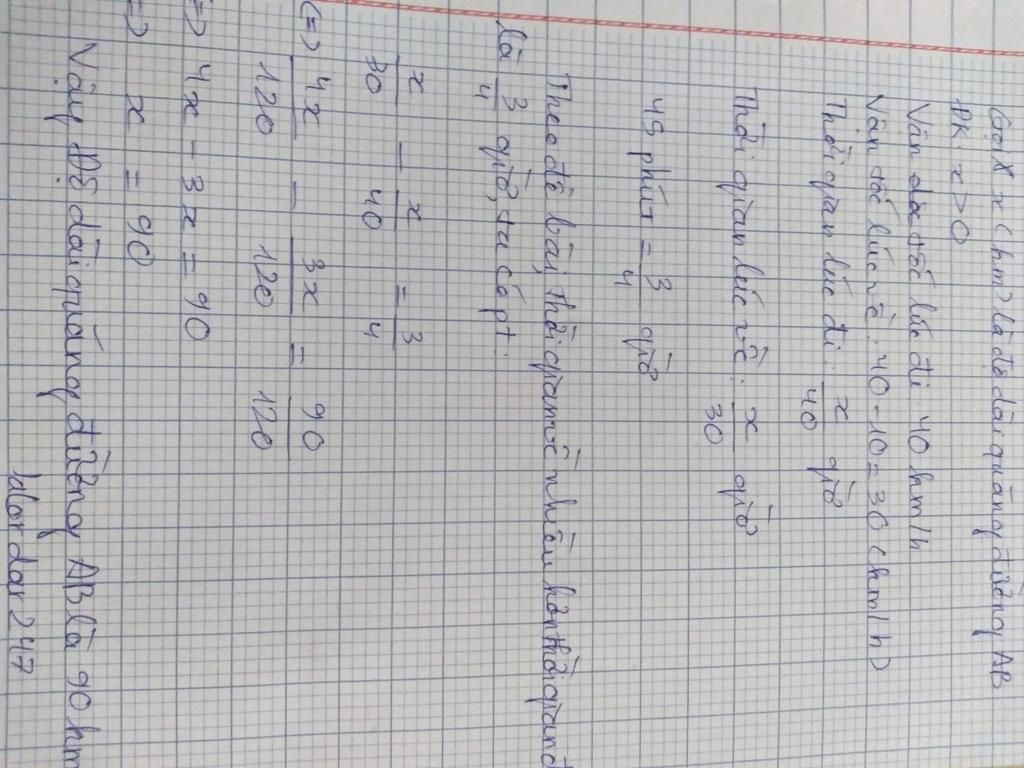 Gọi x (km) là độ dài quãng đường AB
ĐK: x > 0
Vận tốc lúc đi: 40 km/h
Vận tốc lúc về: 40 - 10 = 30 (km/h)
Thời gian lúc đi: x/40 giờ
Thời gian lúc về: x/30 giờ
45 phút = 3/4 giờ
Theo đề bài, thời gian về nhiều hơn thời gian đ
là 3/4 giờ, ta có pt:
x/30 - x/40 = 3/4
(=) 4x/120 - 3x/120 = 90/120
=) 4x - 3x = 90
=) x = 90
Vậy độ dài quãng đường AB là 90 km